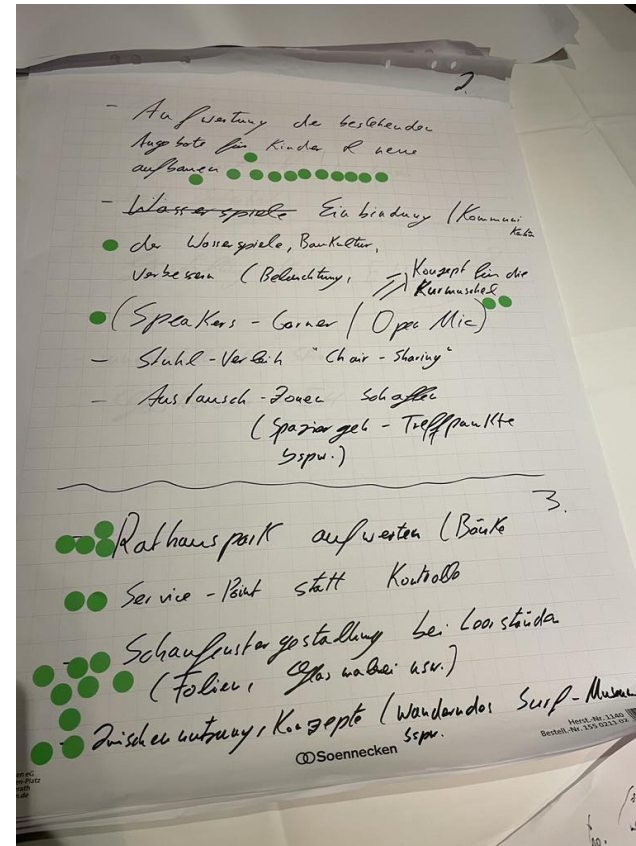 2.
- Aufwertung der bestehenden
Angebote für Kinder & neue
aufbauen
- Wasserspiele Einbindung / Kommuni
kation
der Wasserspiele, Baukultur,
verbessern (Beleuchtung,
=> Konzept für die
Kurmuschel
(Speakers-Corner / Open Mic)
- Stuhl-Verleih "Chair-Sharing"
- Austausch-Zonen schaffen
(Spaziergeh-Treffpunkte
bspw.)
3.
- Rathauspark aufwerten (Bänke
Service-Point statt Kontrolle
- Schaufenstergestaltung bei Leerständen
(Folien, Glasmalerei usw.)
- Zwischennutzungskonzepte (Wanderndes Surf-Museum
bspw.
Soennecken
Herst.-Nr. 1140
Bestell.-Nr. 155 0211 02